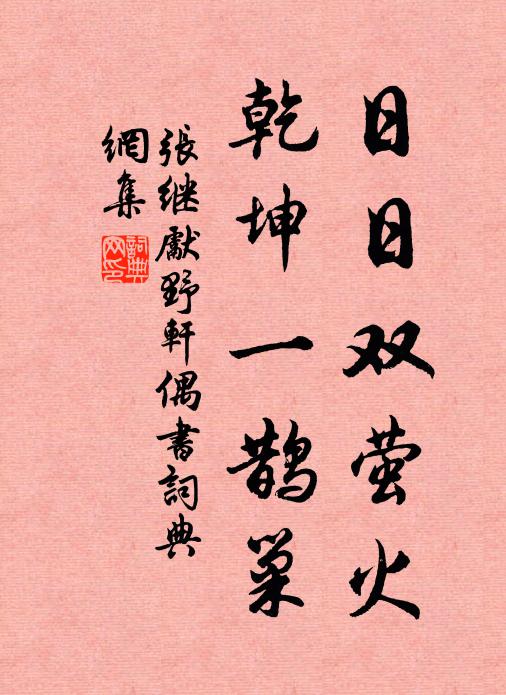 日日双萤火
乾坤一鹊巢
張继獻野軒偶書詞典
網集
詞典
网印